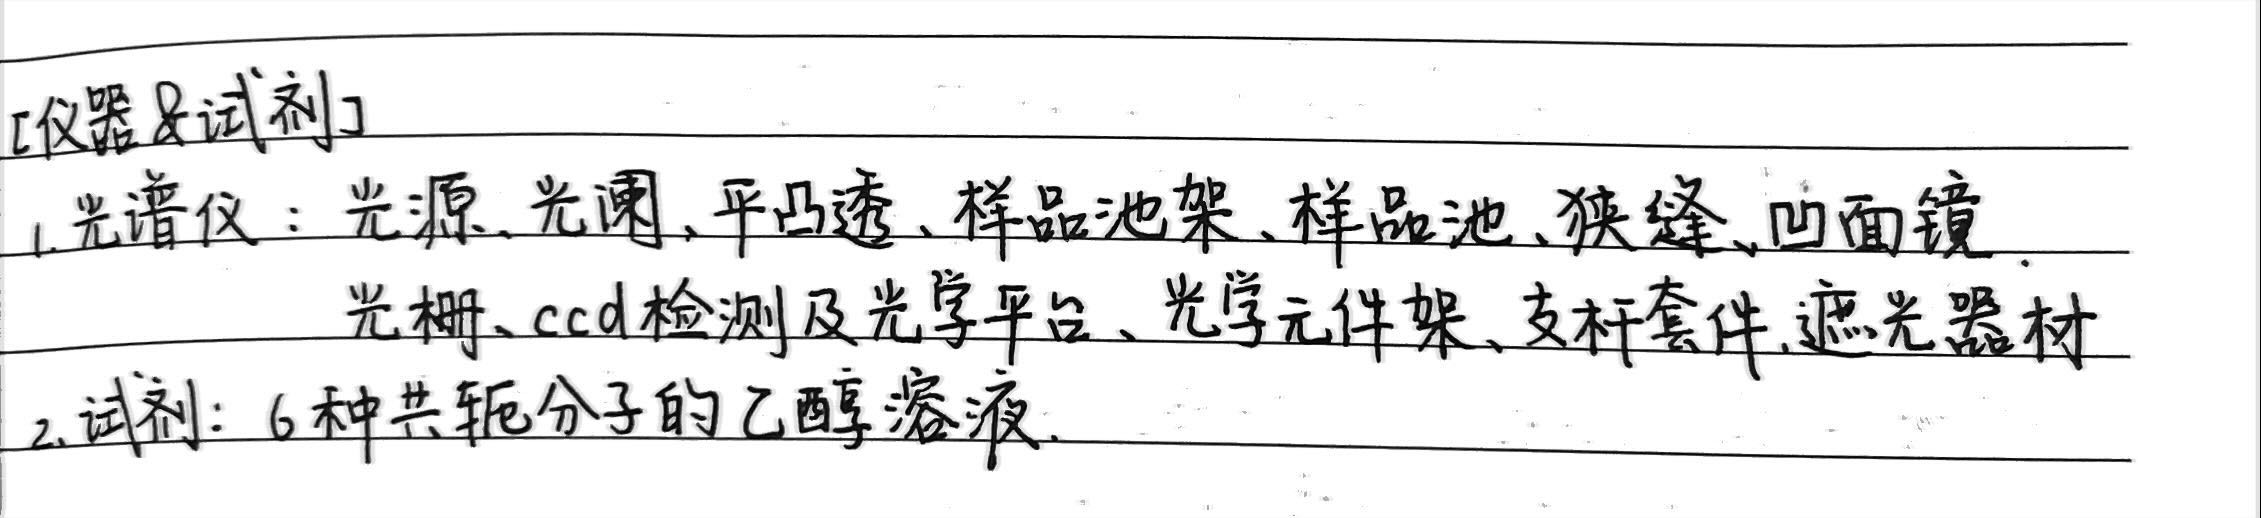 [仪器&试剂]
1.光谱仪：光源、光阑、平凸透、样品池架、样品池、狭缝、凹面镜.
光栅、ccd检测及光学平台、光学元件架、支杆套件.遮光器材
2.试剂：6种共轭分子的乙醇溶液.